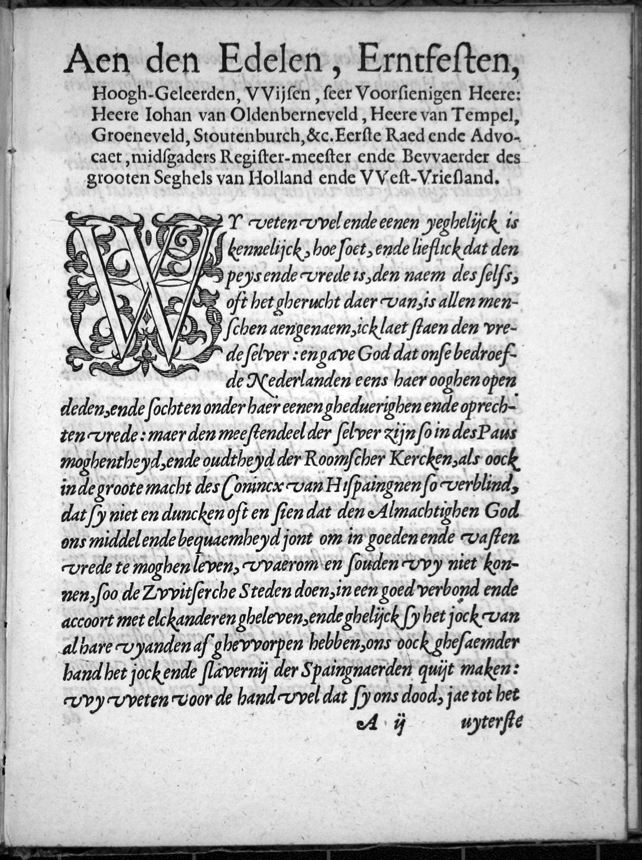 Aen den Edelen, Erntfeſten,
Hoogh-Geleerden, VVijſen, ſeer Voorſienigen Heere:
Heere Iohan van Oldenberneveld, Heere van Tempel,
Groeneveld, Stoutenburch, &c. Eerſte Raed ende Advo-
caet, midſgaders Regiſter-meeſter ende Bevvaerder des
grooten Seghels van Holland ende VVeſt-Vrieſland.
WY vveten vvel ende eenen yeghelijck is
kennelijck, hoe ſoet, ende lieflick dat den
peys ende vrede is, den naem des ſelfs,
oft het gherucht daer van, is allen men-
ſchen aengenaem, ick laet ſtaen den vre-
de ſelver: en gave God dat onſe bedroef-
de Nederlanden eens haer ooghen open
deden, ende ſochten onder haer eenen gheduerighen ende oprech-
ten vrede: maer den meeſtendeel der ſelver zijn ſo in des Paus
moghentheyd, ende oudtheyd der Roomſcher Kercken, als oock
in de groote macht des Conincx van Hiſpaingnen ſo verblind,
dat ſy niet en duncken oft en ſien dat den Almachtighen God
ons middel ende bequaemheyd jont om in goeden ende vaſten
vrede te moghen leven, vvaerom en ſouden vvy niet kon-
nen, ſoo de Zvvitſerche Steden doen, in een goed verbond ende
accoort met elckanderen gheleven, ende ghelijck ſy het jock van
al hare vyanden af ghevvorpen hebben, ons oock gheſaemder
hand het jock ende ſlavernij der Spaingnaerden quijt maken:
vvy vveten voor de hand vvel dat ſy ons dood, jae tot het
A ij uyterſte